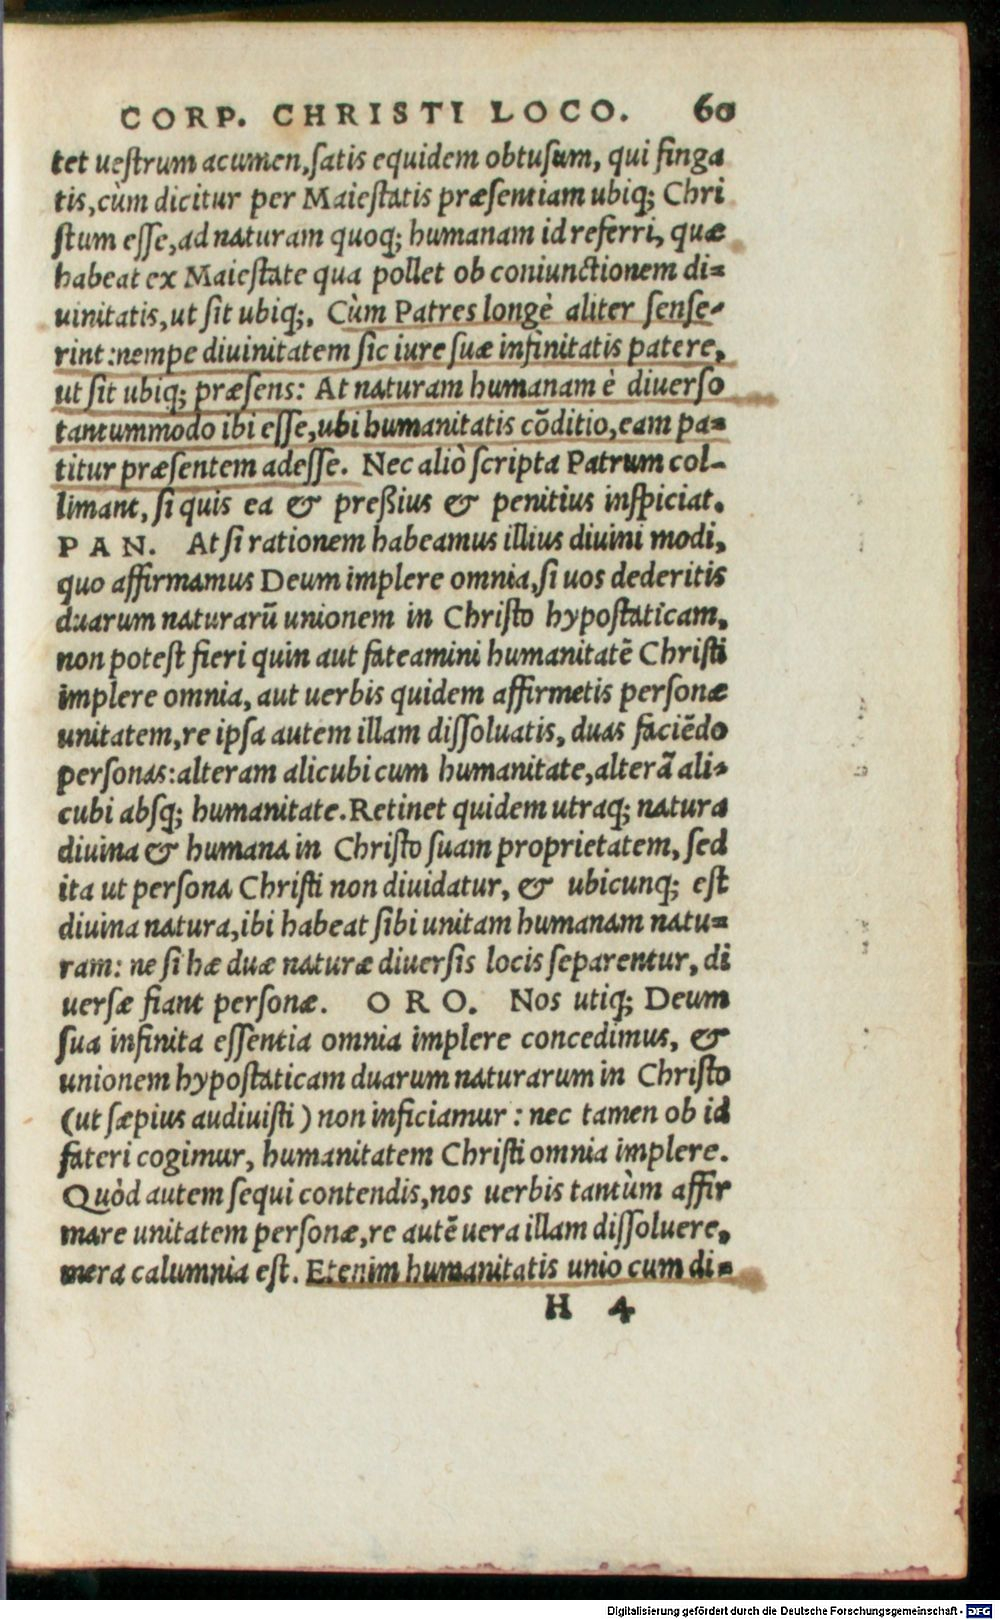 CORP. CHRISTI LOCO. 60
tet uestrum acumen, satis equidem obtusum, qui finga
tis, cùm dicitur per Maiestatis præsentiam ubiq; Chri
stum esse, ad naturam quoq; humanam id referri, quæ
habeat ex Maiestate qua pollet ob coniunctionem di=
uinitatis, ut sit ubiq;. Cùm Patres longè aliter sense-
rint: nempe diuinitatem sic iure suæ infinitatis patere,
ut sit ubiq; præsens: At naturam humanam è diuerso
tantummodo ibi esse, ubi humanitatis cõditio, eam pa=
titur præsentem adesse. Nec aliò scripta Patrum col-
limant, si quis ea & preßius & penitius inspiciat.
PAN. At si rationem habeamus illius diuini modi,
quo affirmamus Deum implere omnia, si uos dederitis
duarum naturarũ unionem in Christo hypostaticam,
non potest fieri quin aut fateamini humanitatẽ Christi
implere omnia, aut uerbis quidem affirmetis personæ
unitatem, re ipsa autem illam dissoluatis, duas faciẽdo
personas: alteram alicubi cum humanitate, alterã ali-
cubi absq; humanitate. Retinet quidem utraq; natura
diuina & humana in Christo suam proprietatem, sed
ita ut persona Christi non diuidatur, & ubicunq; est
diuina natura, ibi habeat sibi unitam humanam natu=
ram: ne si hæ duæ naturæ diuersis locis separentur, di
uersæ fiant personæ. ORO. Nos utiq; Deum
sua infinita essentia omnia implere concedimus, &
unionem hypostaticam duarum naturarum in Christo
(ut sæpius audiuisti) non inficiamur: nec tamen ob id
fateri cogimur, humanitatem Christi omnia implere.
Quòd autem sequi contendis, nos uerbis tantùm affir
mare unitatem personæ, re autẽ uera illam dissoluere,
mera calumnia est. Etenim humanitatis unio cum di=
H 4
Digitalisierung gefördert durch die Deutsche Forschungsgemeinschaft - DFG